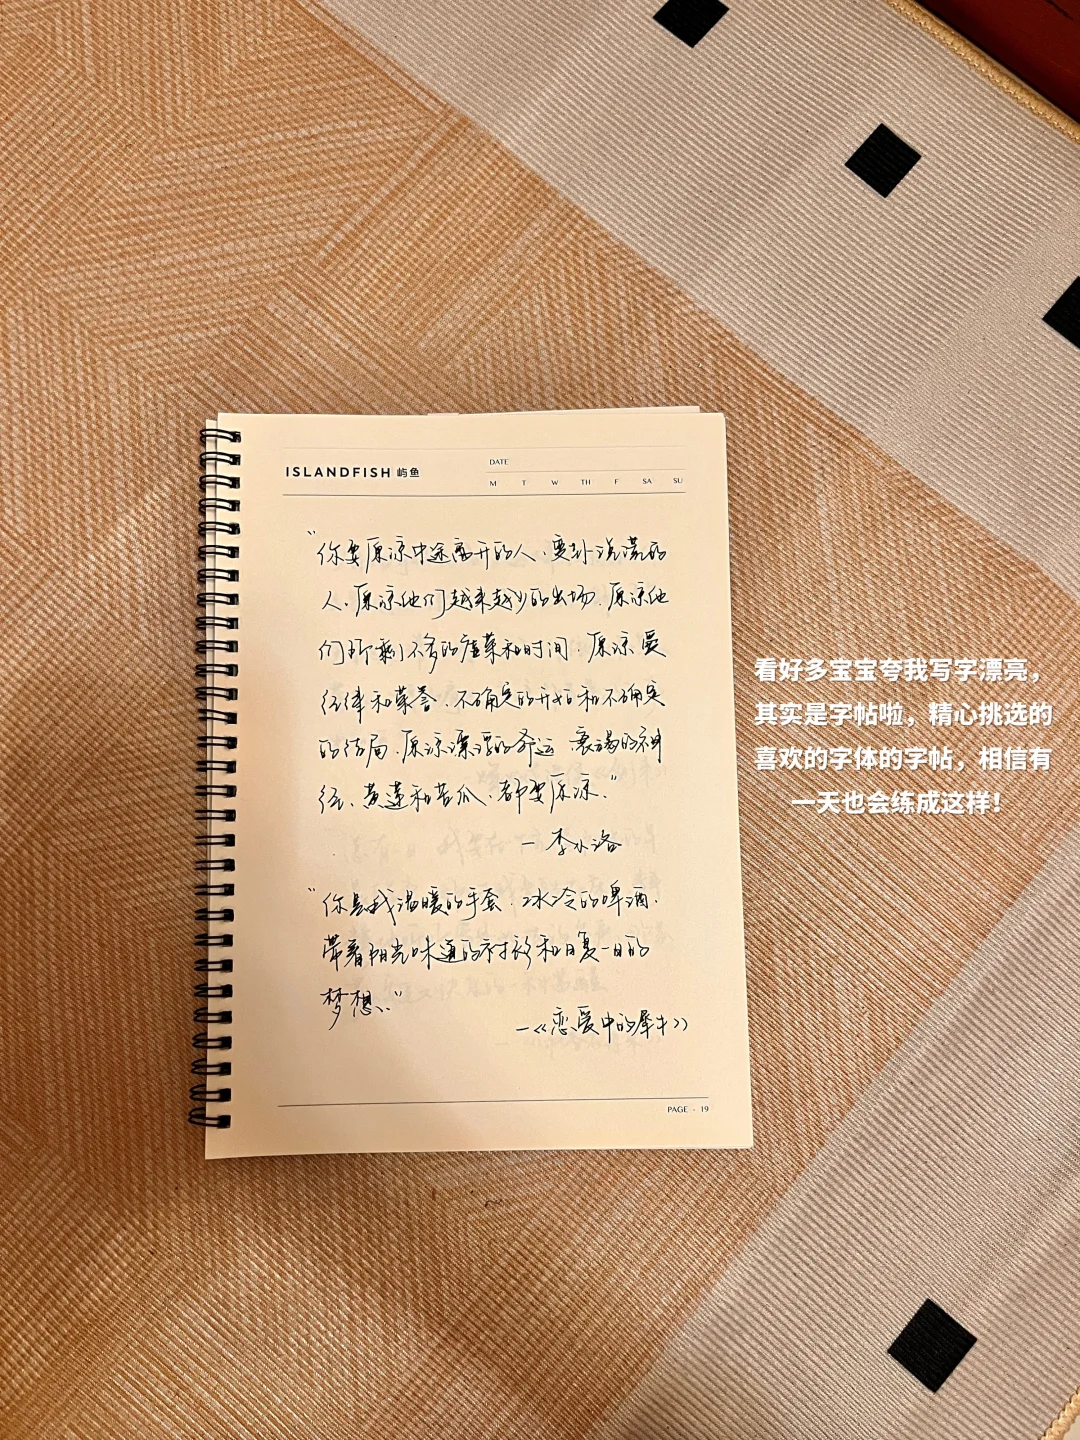 ISLANDFISH 屿鱼
DATE
M T W TH F SA SU
“你要原谅中途离开的人、要补说谎的
人、原谅他们越来越少的出场、原谅他
们所剩不多的广告和时间、原谅爱
经纬和荣誉、不确定的开始和不确定
的结局、原谅漂泊的命运 衰竭的神
经、黄莲和苦瓜、都要原谅.”
— 李水洛
“你是我温暖的手套、冰冷的啤酒、
带着阳光味道的衬衫和日复一日的
梦想..”
—《恋爱中的犀牛》
PAGE - 19
看好多宝宝夸我写字漂亮，
其实是字帖啦，精心挑选的
喜欢的字体的字帖，相信有
一天也会练成这样！